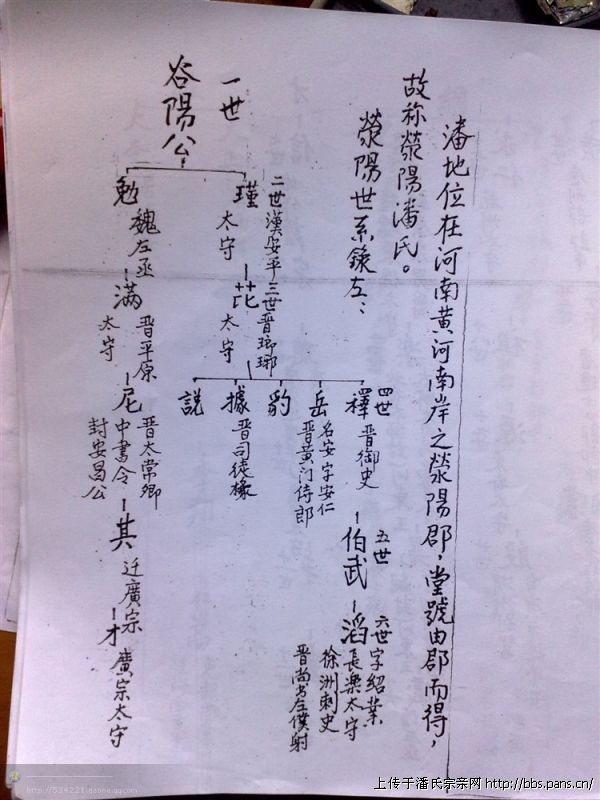 潘地位在河南黄河南岸之滎陽郡，堂號由郡而得，
故称滎陽潘氏。
滎陽世系錄左：
一世
谷陽公
二世漢安平
瑾
太守
勉
魏左丞
三世晋瑯琊
芘
太守
满
晋平原
太守
四世
釋
晋御史
岳
名安字安仁
晋黄门侍郎
豹
據
晋司徒掾
説
尼
晋太常卿
中書令
封安昌公
五世
伯武
其
迁廣宗
六世字紹業
滔
長樂太守
徐洲刺史
晋尚书左僕射
才
廣宗太守
上传于潘氏宗亲网 http://bbs.pans.cn/